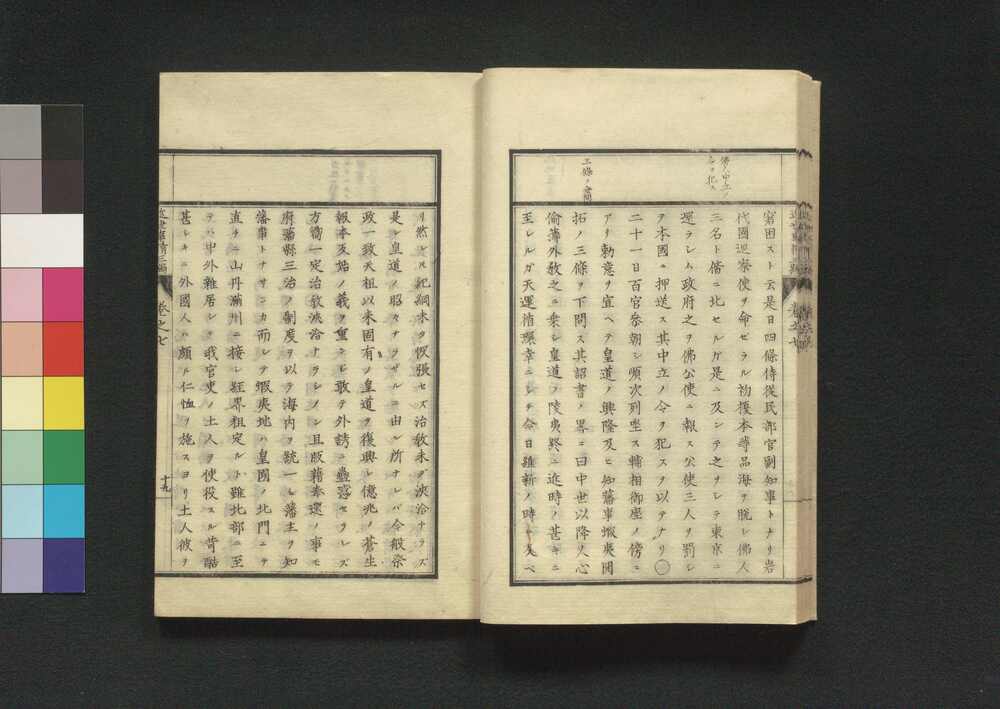 佛ノ中立ノ
令ヲ犯ス
三條ノ會問
窘困スト云是日四條侍從民部官副知事トナリ岩
代國巡察使ヲ命ゼラル初榎本等品海ヲ脱シ佛人
三名ト偕ニ北セルガ是ニ及ンテ之ヲシテ東京ニ
還ラシム政府之ヲ佛公使ニ報ス公使三人ヲ罰シ
ヲ本國ニ押送ス其中立ノ令ヲ犯スヲ以テナリ〇
二十一日百官参朝シ順次列坐ス輔相御座ノ傍ニ
アリ勅意ヲ宣ベテ皇道ノ興隆及ヒ知藩事蝦夷開
拓ノ三條ヲ下問ス其詔書ノ畧ニ曰中世以降人心
偸薄外教之ニ乗シ皇道ノ陵夷終ニ近時ノ甚キニ
至レルガ天運循環幸ニシテ今日維新ノ時ト成ベ
リ然レ𪜈紀綱未タ恢張セズ治教未ダ浹洽ナラズ
是レ皇道ノ昭々ナラザルニ由ル所ナレバ今般祭
政一致天祖以来固有ノ皇道ヲ復興シ億兆ノ蒼生
報本反始ノ義ヲ重ンじ敢テ外誘ニ蠱惑セラレズ
方嚮一定治教浹洽ナラシメン且版籍奉還ノ事モ
府藩縣三治ノ制度ヲ以テ海内ヲ統一シ藩主ヲ知
藩事トナサンカ而シテ蝦夷地ハ皇國ノ北門ニテ
直チニ山丹滿州ニ接シ經界粗定ルト雖北部ニ至
テハ中外雜居シテ我官吏ノ土人ヲ使役スル苛酷
甚シキニ外國人ハ頗ル仁恤ヲ施スヨリ土人彼ヲ
卷之七
十九